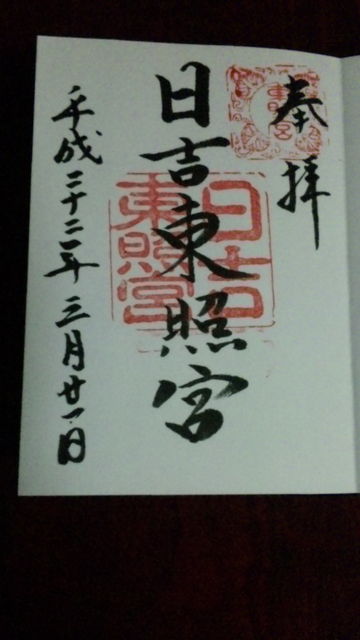 奉拝
日吉東照宮
平成二十二年三月廿一日
日吉
東照宮